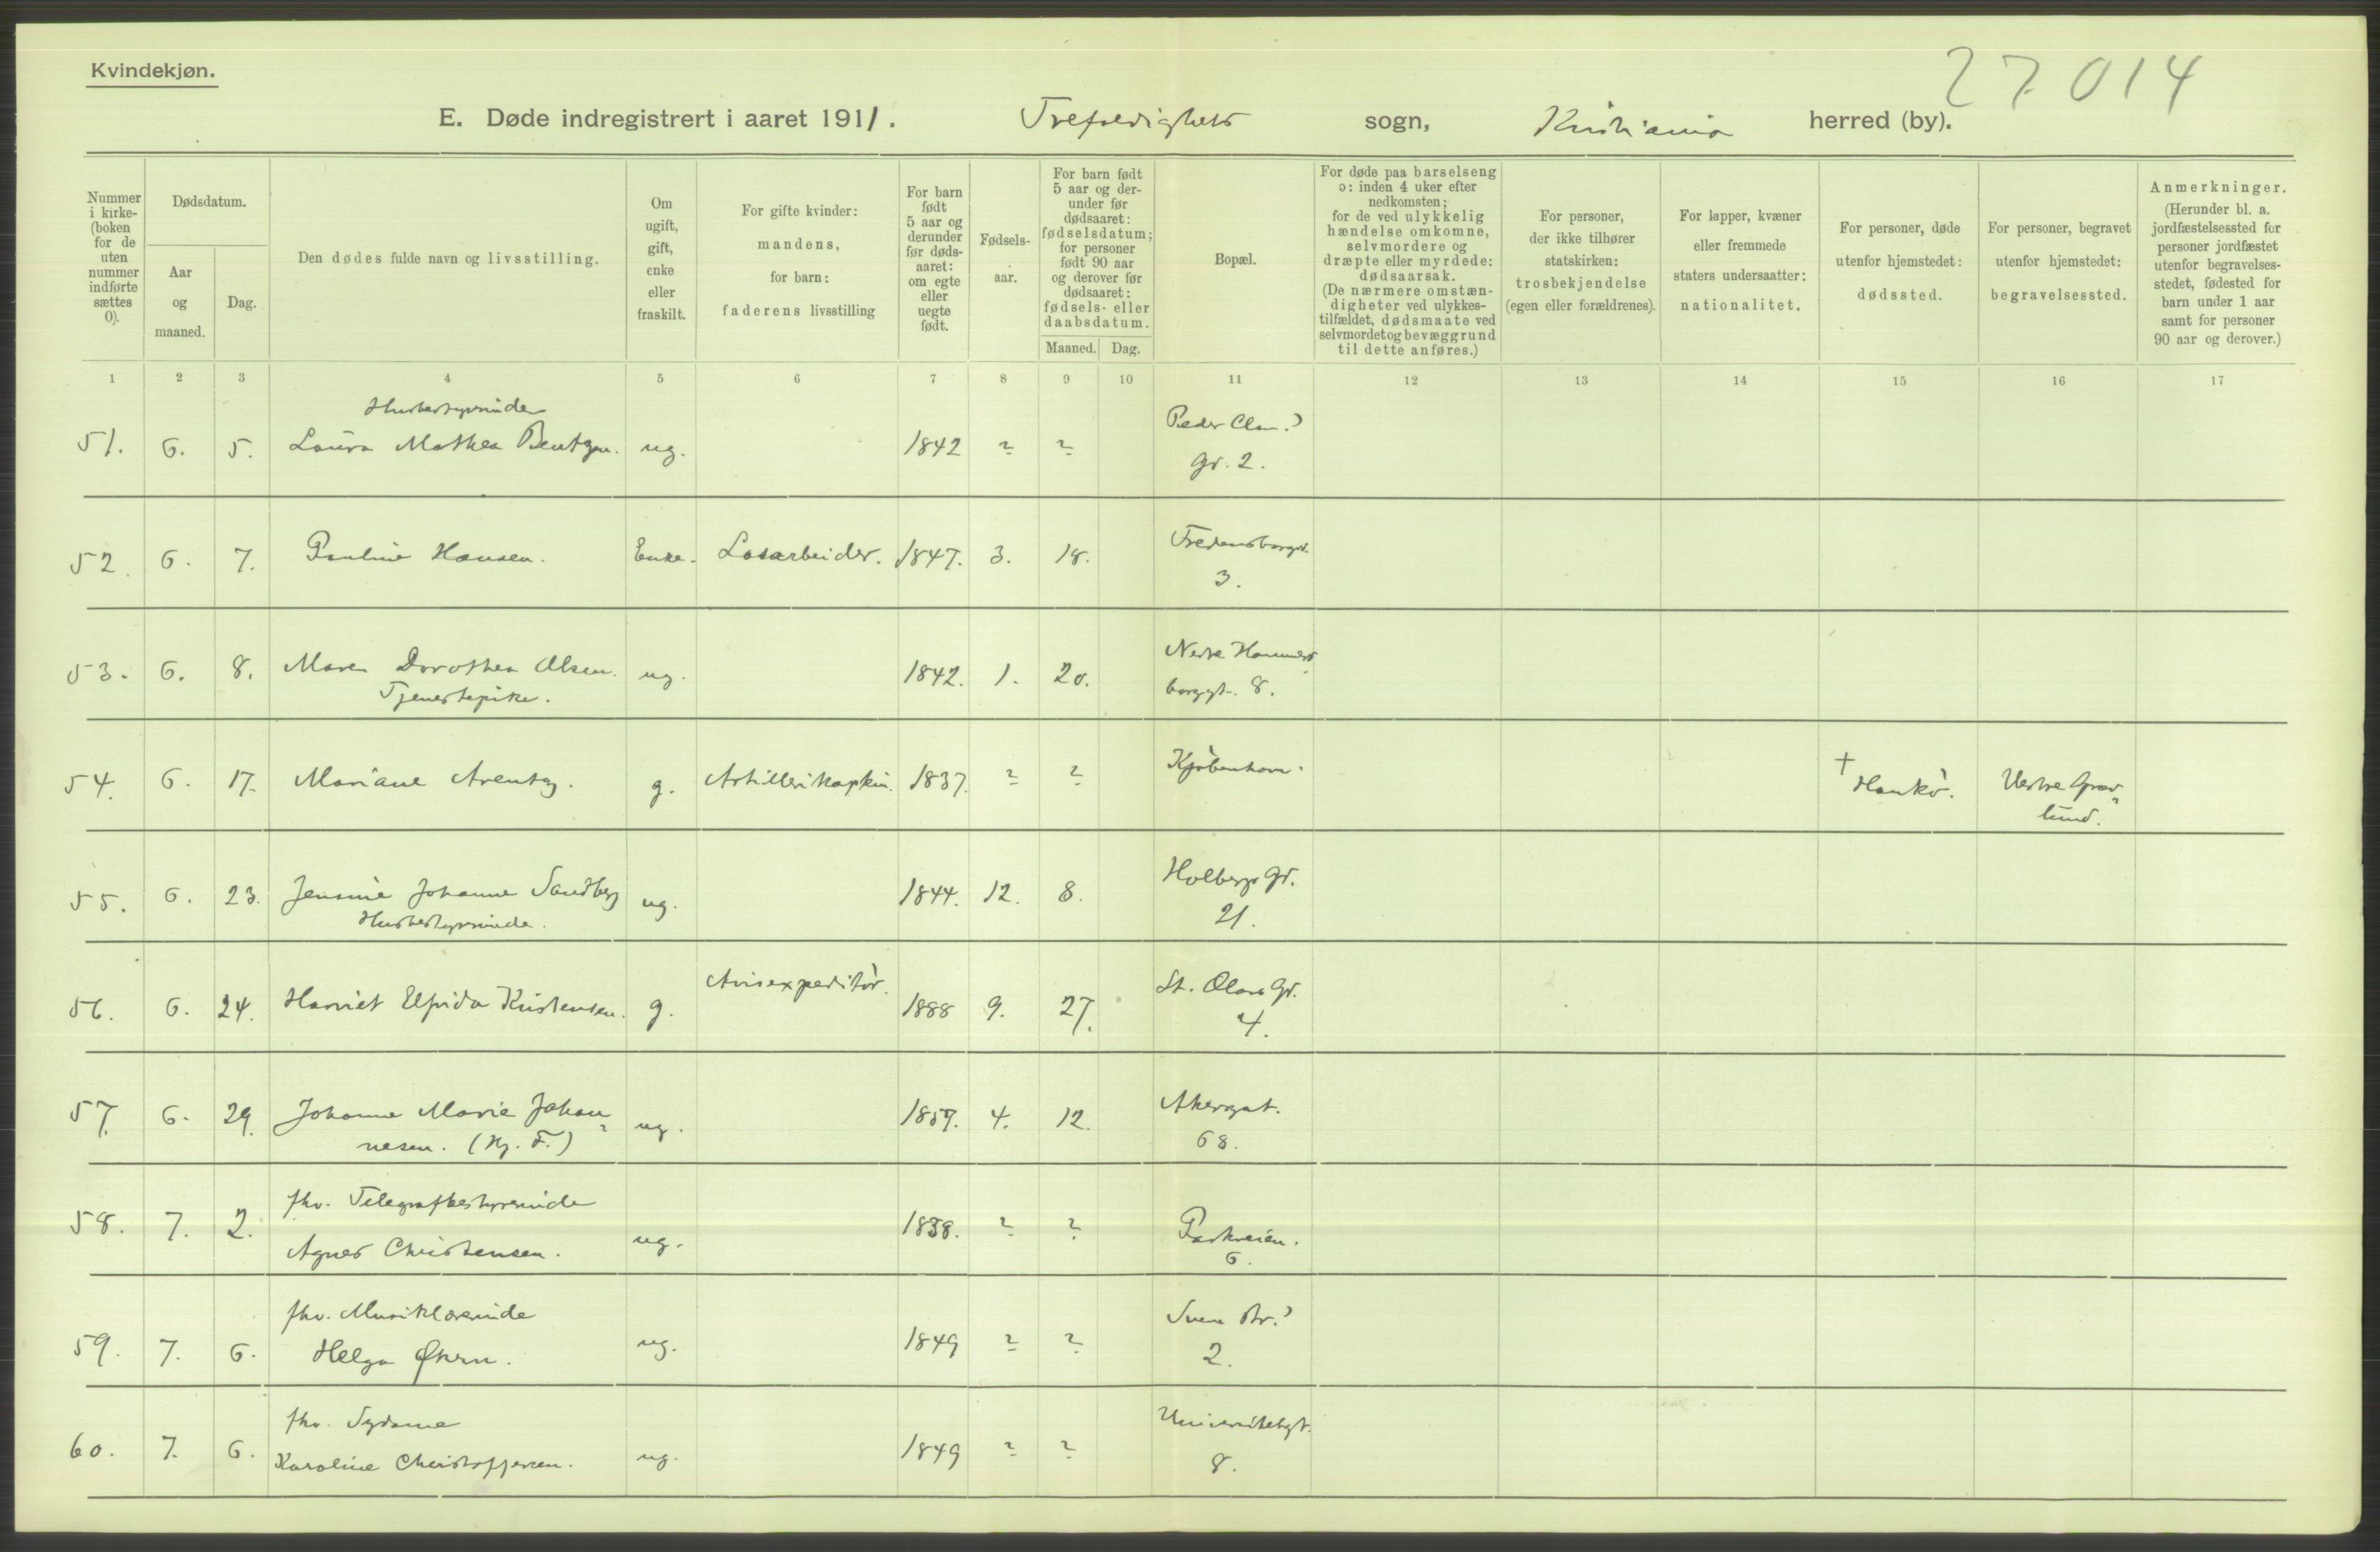 Kvindekjøn.
27014
E. Døde indregistrert i aaret 1911. Trefoldigheds sogn, Kristiania herred (by).
Nummer i kirke- (boken for de uten nummer indførte sættes 0).
Dødsdatum.
Aar og maaned.
Dag.
Den dødes fulde navn og livsstilling.
Om ugift, gift, enke eller fraskilt.
For gifte kvinder: mandens, for barn: faderens livsstilling
For barn født 5 aar og derunder før døds- aaret: om egte eller uegte født.
Fødsels- aar.
For barn født 5 aar og der- under før dødsaaret: fødselsdatum; for personer født 90 aar og derover før dødsaaret: fødsels- eller daabsdatum.
Maaned. Dag.
Bopæl.
For døde paa barselseng ɔ: inden 4 uker efter nedkomsten; for de ved ulykkelig hændelse omkomne, selvmordere og dræpte eller myrdede: dødsaarsak. (De nærmere omstæn- digheter ved ulykkes- tilfældet, dødsmaate ved selvmordet og bevæggrund til dette anføres.)
For personer, der ikke tilhører statskirken: trosbekjendelse (egen eller forældrenes).
For lapper, kvæner eller fremmede staters undersaatter: nationalitet.
For personer, døde utenfor hjemstedet: dødssted.
For personer, begravet utenfor hjemstedet: begravelsessted.
Anmerkninger. (Herunder bl. a. jordfæstelsessted for personer jordfæstet utenfor begravelses- stedet, fødested for barn under 1 aar samt for personer 90 aar og derover.)
1 2 3 4 5 6 7 8 9 10 11 12 13 14 15 16 17
Husbestyrinde
51. 6. 5. Laura Mathea Bentzen. ug. 1842 ? ? Peder Clau.? Gd. 2.
52. 6. 7. Pauline Hansen. Enke. Løsarbeider. 1847. 3. 18. Fredensborgv. 3.
53. 6. 8. Maren Dorothea Olsen. ug. 1842. 1. 20. Nedre Hammers
Tjenestepike. borggt. 8.
54. 6. 17. Mariane Arentz. g. Artillerikaptein. 1837. ? ? Kjøbenhavn. † Hankø. Vestre Grav
lund.
55. 6. 23. Jensine Johanne Sandberg ug. 1844. 12. 8. Holbergs Gd.
Husbestyrinde. 21.
Avisexpeditør.
56. 6. 24. Harriet Elfrida Kristensen. g. 1888 9. 27. St. Olavs Gd. 4.
57. 6. 29. Johanne Marie Johan ug. 1857. 4. 12. Akersgat.
nesen. (Hj. F.) 68.
fhv. Telegrafbestyrerinde
58. 7. 2. Agnes Christensen. ug. 1838. ? ? Parkveien. 6.
fhv. Musiklærerinde
59. 7. 6. Helga Økern. ug. 1849 ? ? Sven Br.? 2.
fhv. Sydame
60. 7. 6. Karoline Christoffersen. ug. 1849 ? ? Universitetsgt. 8.